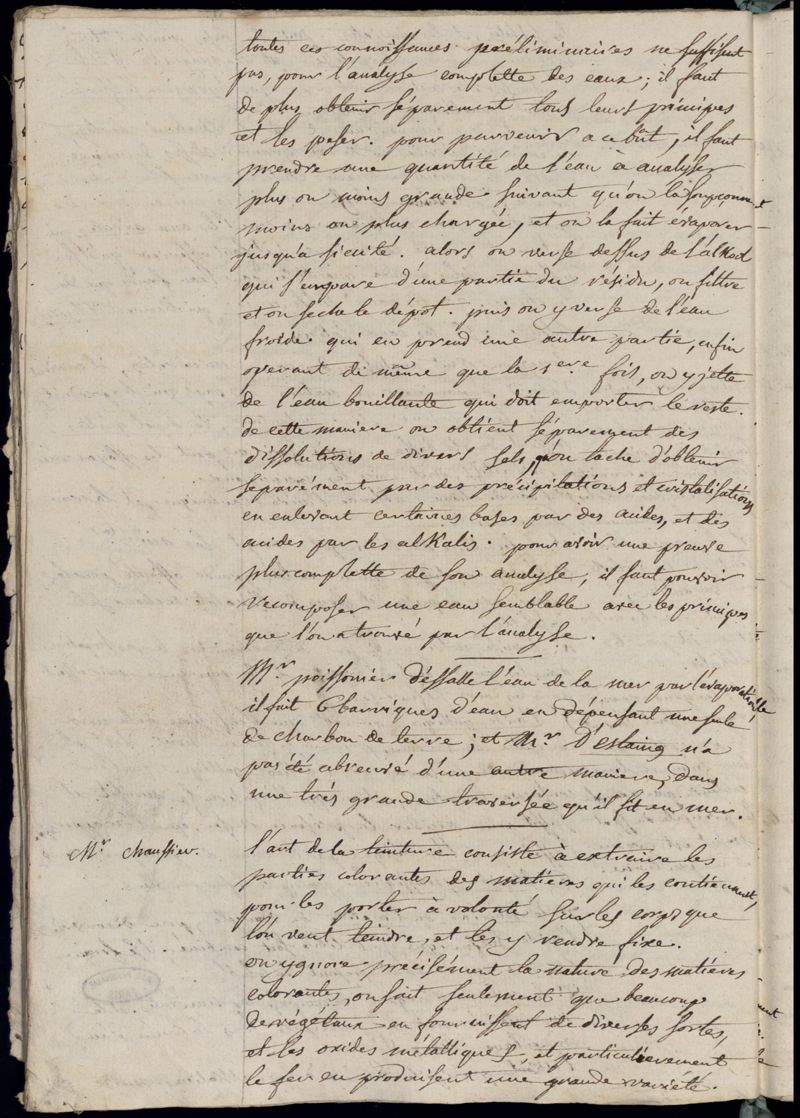 toutes ces connoissances préliminaires ne suffisent
pas, pour l'analyse complette des eaux; il faut
de plus obtenir séparement tous leurs principes
et les peser. pour parvenir a ce bût, il faut
prendre une quantité de l'eau à analÿser
plus ou moins grande suivant qu'on la soupçonne
moins ou plus chargée, et on la fait évaporer
jusqu'à siccité. alors on verse dessus de l'alkool
qui s'empare d'une partie du résidu, on filtre
et on seche le dépot. puis on y verse de l'eau
froide qui en prend une autre partie, enfin
operant de même que la 1ere fois, on y jette
de l'eau bouillante qui doit emporter le reste.
de cette maniere on obtient séparement des
dissolutions de divers sels, qu'on tache d'obtenir
separément par des précipitations et cristalisations
en enlevant certaines bases par des acides, et des
acides par les alKalis. pour avoir une preuve
plus complette de son analyse, il faut pouvoir
recomposer une eau semblable avec les principes
que l'on a trouvé par l'analyse.
Mr. poissonier déssalle l'eau de la mer par l'évaporation
il fait 6 barriques d'eau en dépensant une seule
de charbon de terre; et Mr. D'estaing n'a
pas été abreuvé d'une autre maniere, dans
une très grande traversée qu'il fit en mer.
Mr. chaussier.
l'art de la teinture consiste à extraire les
parties colorantes des matières qui les contiennent,
pour les porter à volonté sur les corps que
l'on veut teindre, et les y rendre fixe.
on ygnore précisément la nature des matières
colorantes, on sait seulement que beaucoup
de végétaux en fournissent de diverses sortes,
et les oxides métalliques, et particulierement
le fer en produisent une grande variété.